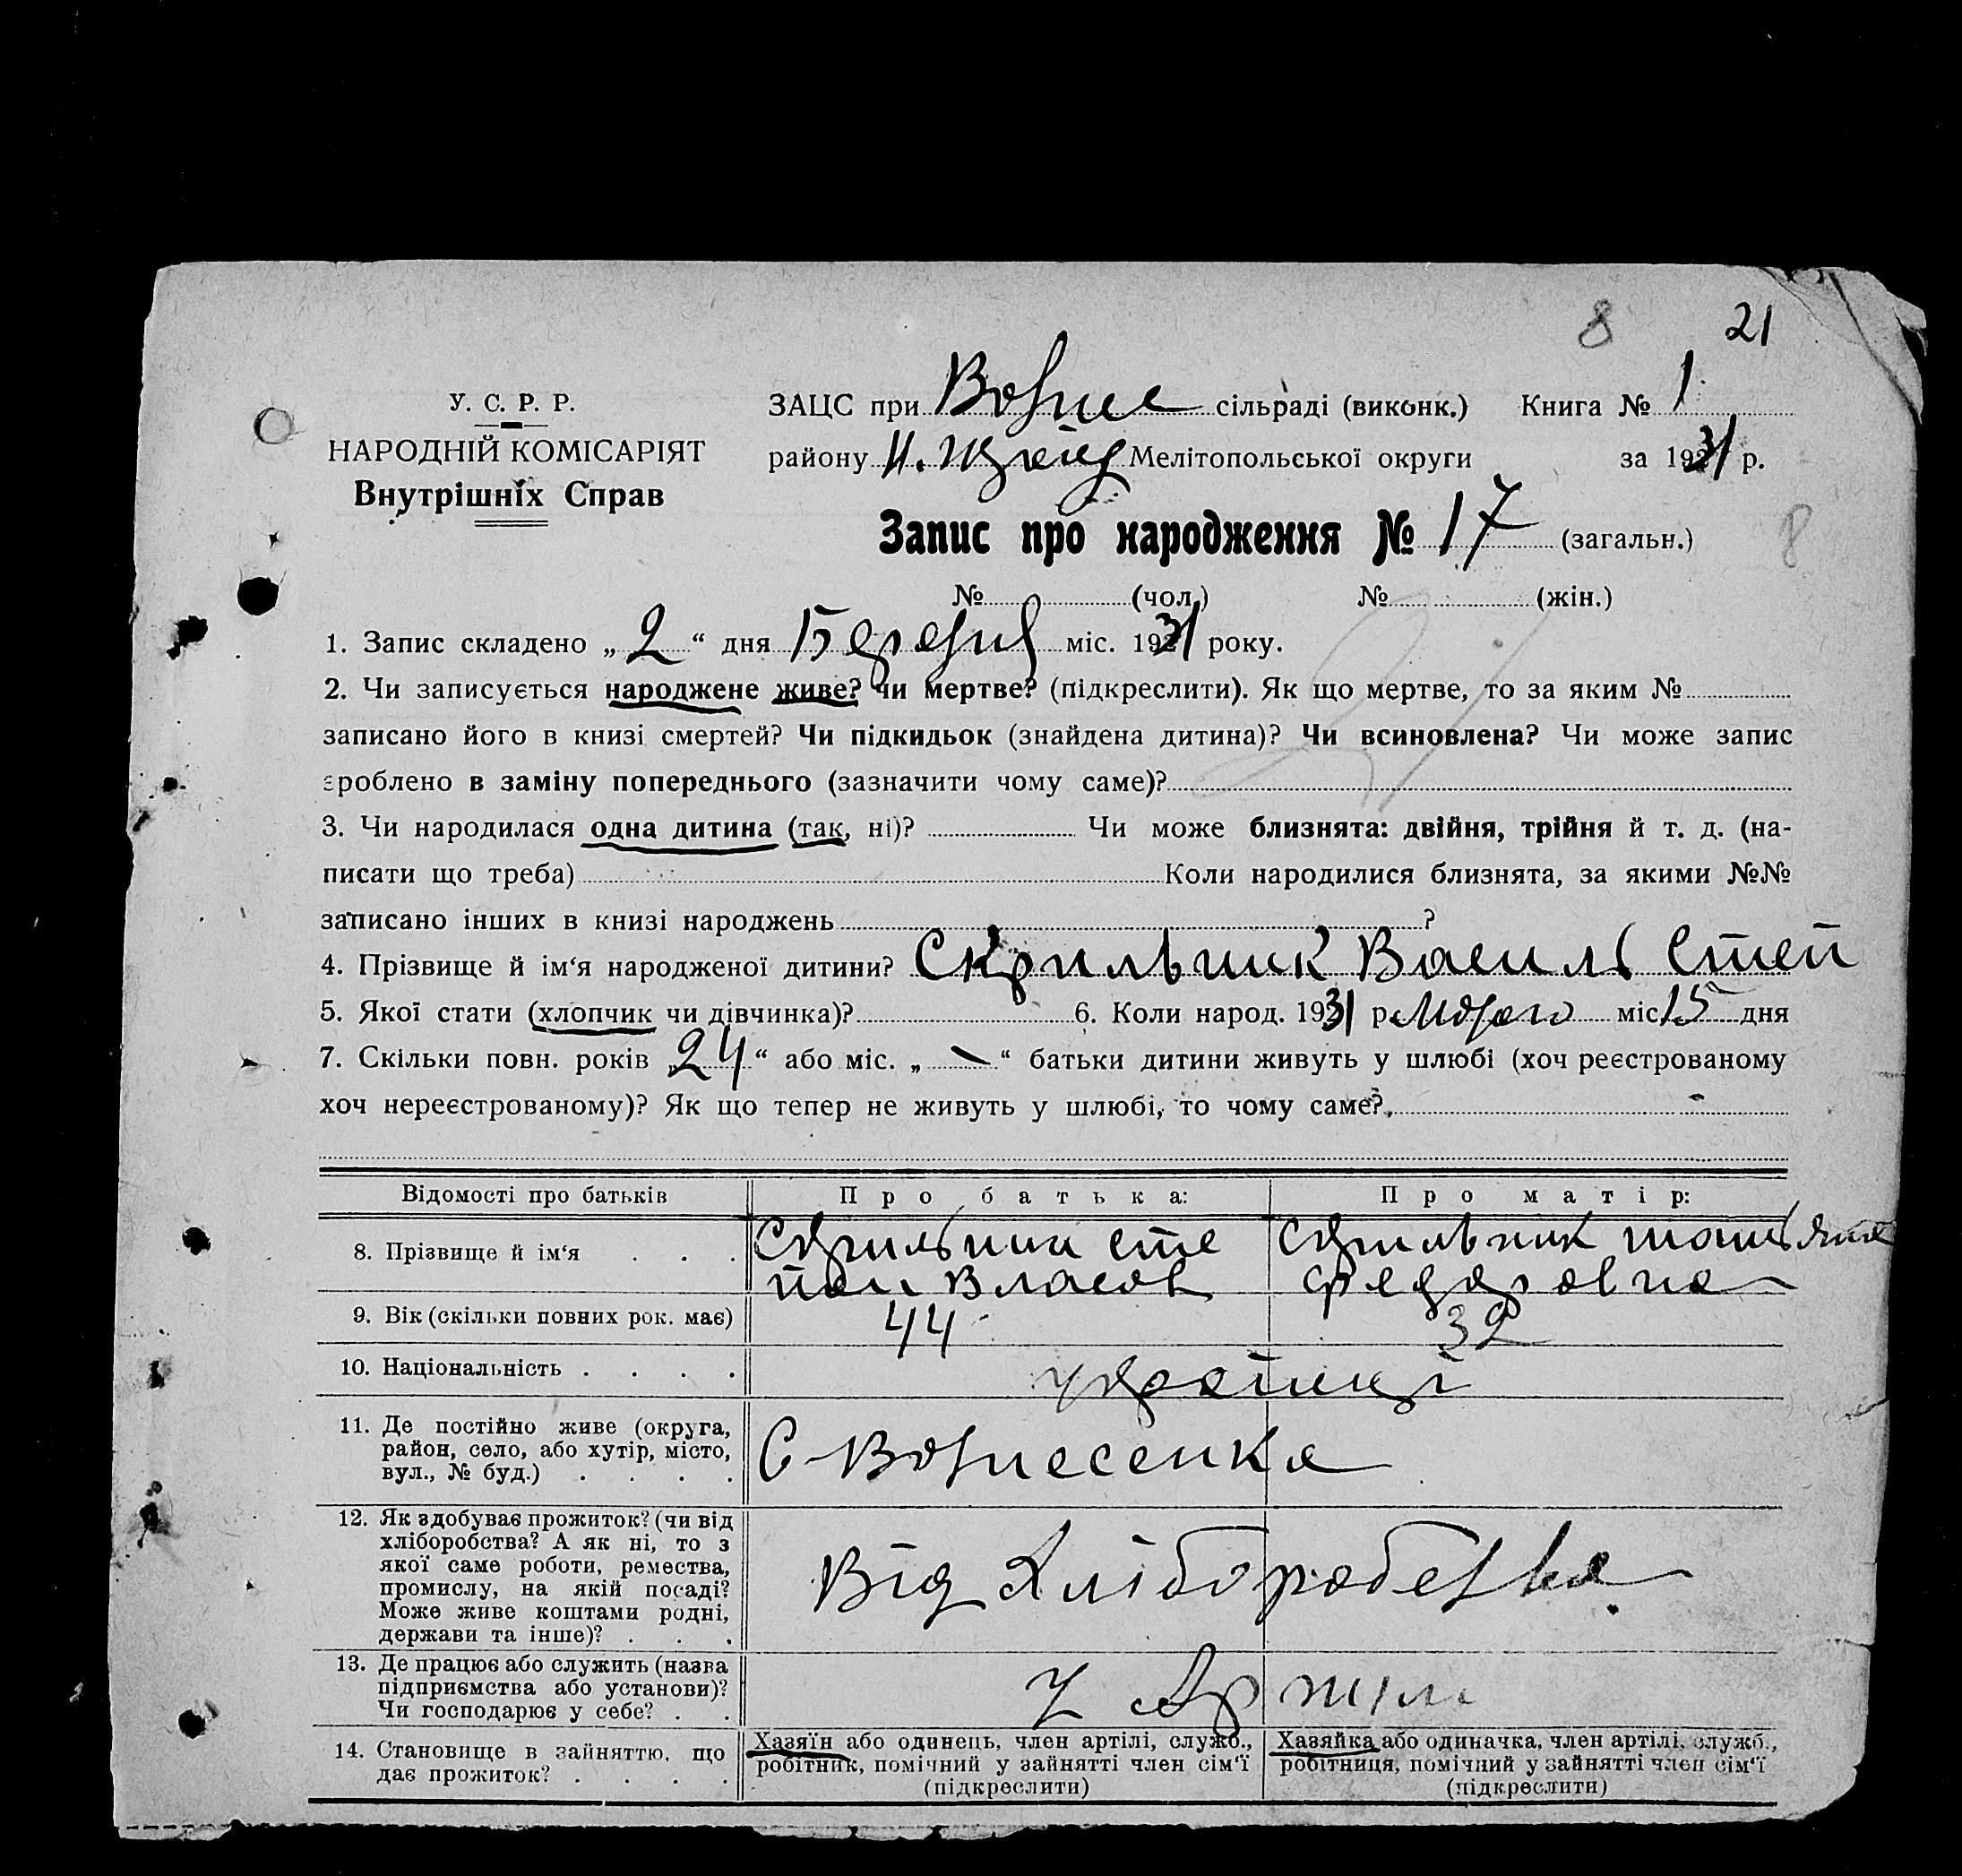 8 21
У. С. Р. Р.
НАРОДНІЙ КОМІСАРІЯТ
Внутрішніх Справ
ЗАЦС при Возне сільраді (виконк.) Книга № 1
району Мелітопольської округи за 1931 р.
Запис про народження № 17 (загальн.)
8
№ (чол.) № (жін.)
1. Запис складено „ 2 “ дня Березня міс. 1931 року.
2. Чи записується народжене живе? чи мертве? (підкреслити). Як що мертве, то за яким №
записано його в книзі смертей? Чи підкидьок (знайдена дитина)? Чи всиновлена? Чи може запис
зроблено в заміну попереднього (зазначити чому саме)?
21
3. Чи народилася одна дитина (так, ні)? Чи може близнята: двійня, трійня й т. д. (на-
писати що треба) Коли народилися близнята, за якими №№
записано інших в книзі народжень ?
4. Прізвище й ім‘я народженої дитини? Скрильник Василь Степ
5. Якої стати (хлопчик чи дівчинка)? 6. Коли народ. 1931 р. Лютого міс. 15 дня
7. Скільки повн. років „ 24 “ або міс. „ — “ батьки дитини живуть у шлюбі (хоч реєстрованому
хоч нереєстрованому)? Як що тепер не живуть у шлюбі, то чому саме?
Відомості про батьків Про батька: Про матір:
8. Прізвище й ім‘я Скрильник Сте Скрильник Татьяна
пан Власов Федоровна
9. Вік (скільки повних рок. має) 44 32
10. Національність українці
11. Де постійно живе (округа,
район, село, або хутір, місто,
вул., № буд.) С Вознесенка
12. Як здобуває прожиток? (чи від
хліборобства? А як ні, то з
якої саме роботи, ремества,
промислу, на якій посаді?
Може живе коштами родні,
держави та інше)? Від Хліборобства
13. Де працює або служить (назва
підприємства або установи)?
Чи господарює у себе? У Артілі
14. Становище в зайняттю, що
дає прожиток?
Хазяїн або одинець, член артілі, служб.,
робітник, помічний у зайнятті член сім‘ї
(підкреслити)
Хазяйка або одиначка, член артілі, служб.,
робітниця, помічний у зайнятті член сім‘ї
(підкреслити)